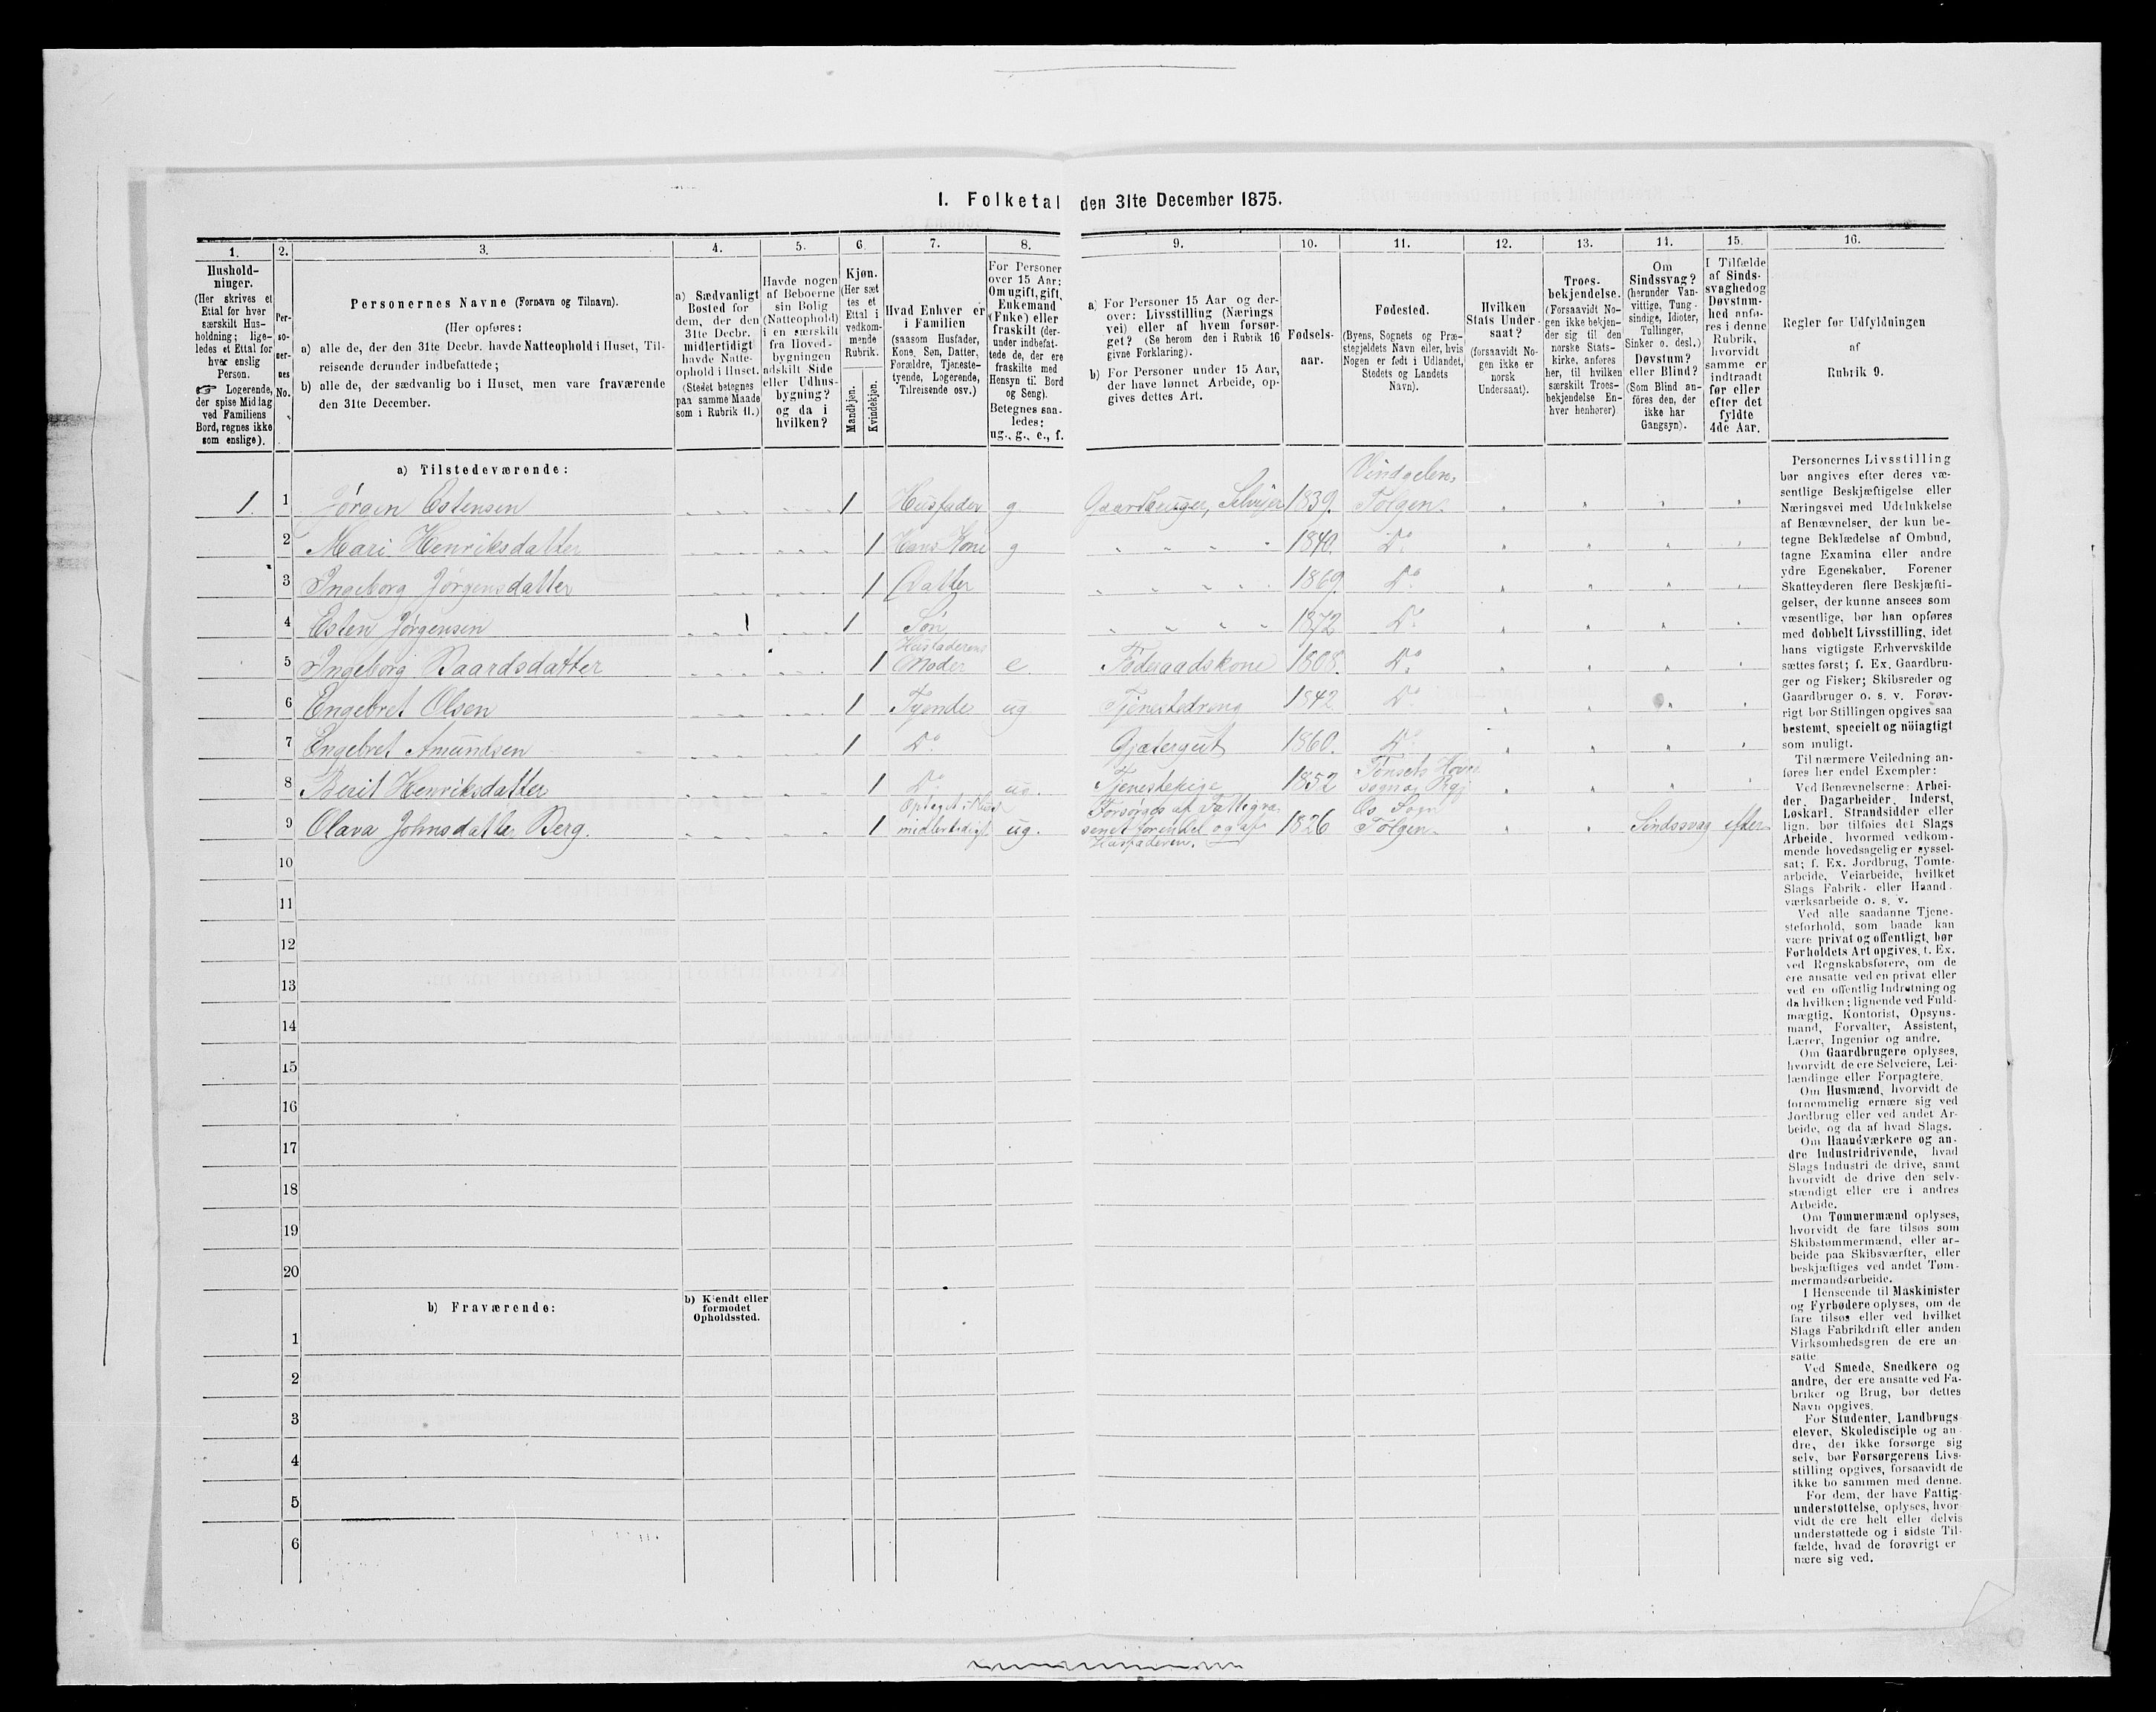 I. Folketal den 31te December 1875.
1.
Hushold-
ninger.
(Her skrives et
Ettal for hver
særskilt Hus-
holdning; lige-
ledes et Ettal for
hver enslig
Person.
☞ Logerende,
der spise Middag
ved Familiens
Bord, regnes ikke
som enslige).
2.
Per-
so-
ner-
nes
No.
3.
Personernes Navne (Fornavn og Tilnavn).
(Her opføres:
a) alle de, der den 31te Decbr. havde Natteophold i Huset, Til-
reisende derunder indbefattede;
b) alle de, der sædvanlig bo i Huset, men vare fraværende
den 31te December.
4.
a) Sædvanligt
Bosted for
dem, der den
31te Decbr.
midlertidigt
havde Natte-
ophold i Huset.
(Stedet betegnes
paa samme Maade
som i Rubrik 11.)
5.
Havde nogen
af Beboerne
sin Bolig
(Natteophold)
i en særskilt
fra Hoved-
bygningen
adskilt Side
eller Udhus-
bygning?
og da i
hvilken?
6.
Kjøn.
(Her sæt
tes et
Ettal i
vedkom-
mende
Rubrik.
Mandkjøn.
Kvindekjøn.
7.
Hvad Enhver er
i Familien
(saasom Husfader,
Kone, Søn, Datter,
Forældre, Tjeneste-
tyende, Logerende,
Tilreisende osv.)
8.
For Personer
over 15 Aar:
Om ugift, gift,
Enkemand
(Enke) eller
fraskilt (der-
under indbefat-
tede de, der ere
fraskilte med
Hensyn til Bord
og Seng).
Betegnes saa-
ledes:
ug., g., e., f.
9.
a) For Personer 15 Aar og der-
over: Livsstilling (Nærings
vei) eller af hvem forsør-
get? (Se herom den i Rubrik 16
givne Forklaring).
b) For Personer under 15 Aar,
der have lønnet Arbeide, op-
gives dettes Art.
10.
Fødsels-
aar.
11.
Fødested.
(Byens, Sognets og Præ-
stegjeldets Navn eller, hvis
Nogen er født i Udlandet,
Stedets og Landets
Navn).
12.
Hvilken
Stats Under-
saat?
(forsaavidt No-
gen ikke er
norsk
Undersaat).
13.
Troes-
bekjendelse.
(Forsaavidt No-
gen ikke bekjen-
der sig til den
norske Stats-
kirke, anføres
her, til hvilken
særskilt Troes-
bekjendelse En-
hver henhører)
14.
Om
Sindssvag?
(herunder Van-
vittige, Tung-
sindige, Idioter,
Tullinger,
Sinker o. desl.)
Døvstum?
eller Blind?
(Som Blind an-
føres den, der
ikke har
Gangsyn).
15.
I Tilfælde
af Sinds-
svaghed og
Døvstum-
hed anfø-
res i denne
Rubrik,
hvorvidt
samme er
indtraadt
før eller
efter det
fyldte
4de Aar.
16.
Regler for Udfyldningen
af
Rubrik 9.
a) Tilstedeværende:
1. 1 Jørgen Estensen 1 Husfader g Gaardbruger, Selveier 1839. Vindgelen, Tolgen.
2 Mari Henriksdatter 1 Hans Kone g 1840. Do
3 Ingeborg Jørgensdatter 1 Datter 1869. Do
4 Esten Jørgensen 1 Søn 1872 Do
5 Ingeborg Baardsdatter 1 Husfaderens Moder e. Føderaadskone 1808. Do
6 Engebret Olsen 1 Tyende ug Tjenestedreng 1842 Do
7 Engebret Amundsen 1 Do Gjætergut 1860. Do
8 Berit Henriksdatter 1 Do ug. Tjenestepige 1852 Tønsets
9 Olava Johnsdatter Berg. 1 midlertidigt ug. Forsørges af Fattigvæ
senet for en Del og af
Husfaderen. 1826 Os Sogn
Tolgen. Sindssvag efter
10
11
12
13
14
15
16
17
18
19
20
b) Fraværende:
b) Kjendt eller
formodet
Opholdssted.
1
2
3
4
5
6
Personernes Livsstilling
bør angives efter deres væ-
sentlige Beskjæftigelse eller
Næringsvei med Udelukkelse
af Benævnelser, der kun be-
tegne Beklædelse af Ombud,
tagne Examina eller andre
ydre Egenskaber. Forener
Skatteyderen flere Beskjæfti-
gelser, der kunne ansees som
væsentlige, bør han opføres
med dobbelt Livsstilling, idet
hans vigtigste Erhvervskilde
sættes først; f. Ex. Gaardbru-
ger og Fisker; Skibsreder og
Gaardbruger o. s. v. Forøv-
rigt bør Stillingen opgives saa
bestemt, specielt og nöiagtigt
som muligt.
Til nærmere Veiledning an-
føres her endel Exempler:
Ved Benævnelserne: Arbei-
der, Dagarbeider, Inderst,
Løskarl, Strandsidder eller
lign. bør tilføies det Slags
Arbeide, hvormed vedkom-
mende hovedsagelig er syssel-
sat; f. Ex. Jordbrug, Tomte-
arbeide, Veiarbeide, hvilket
Slags Fabrik- eller Haand-
værksarbeide o. s. v.
Ved alle saadanne Tjene-
steforhold, som baade kan
være privat og offentligt, bør
Forholdets Art opgives, f. Ex.
ved Regnskabsførere, om de
ere ansatte ved en privat eller
ved en offentlig Indretning og
da hvilken; lignende ved Fuld-
mægtig, Kontorist, Opsyns-
mand, Forvalter, Assistent,
Lærer, Ingeniør og andre.
Om Gaardbrugere oplyses,
hvorvidt de ere Selveiere, Lei-
lændinge eller Forpagtere.
Om Husmænd, hvorvidt de
fornemmelig ernære sig ved
Jordbrug eller ved andet Ar-
beide, og da af hvad Slags.
Om Haandværkere og an-
dre Industridrivende, hvad
Slags Industri de drive, samt
hvorvidt de drive den selv-
stændigt eller ere i andres
Arbeide.
Om Tømmermænd oplyses,
hvorvidt de fare tilsøs som
Skibstømmermænd, eller ar-
beide paa Skibsværfter, eller
beskjæftiges ved andet Tøm-
mermandsarbeide.
I Henseende til Maskinister
og Fyrbødere oplyses, om de
fare tilsøs eller ved hvilket
Slags Fabrikdrift eller anden
Virksomhedsgren de ere an
satte
Ved Smede, Snedkere og
andre, der ere ansatte ved Fa-
briker og Brug, bør dettes
Navn opgives.
For Studenter, Landbrugs-
elever, Skoledisciple og an-
dre, der ikke forsørge sig
selv, bør Forsørgerens Livs-
stilling opgives, forsaavidt de
ikke bo sammen med denne.
For dem, der have Fattig-
understøttelse, oplyses, hvor-
vidt de ere helt eller delvis
understøttede og i sidste Til-
fælde, hvad de forøvrigt er
nære sig ved.